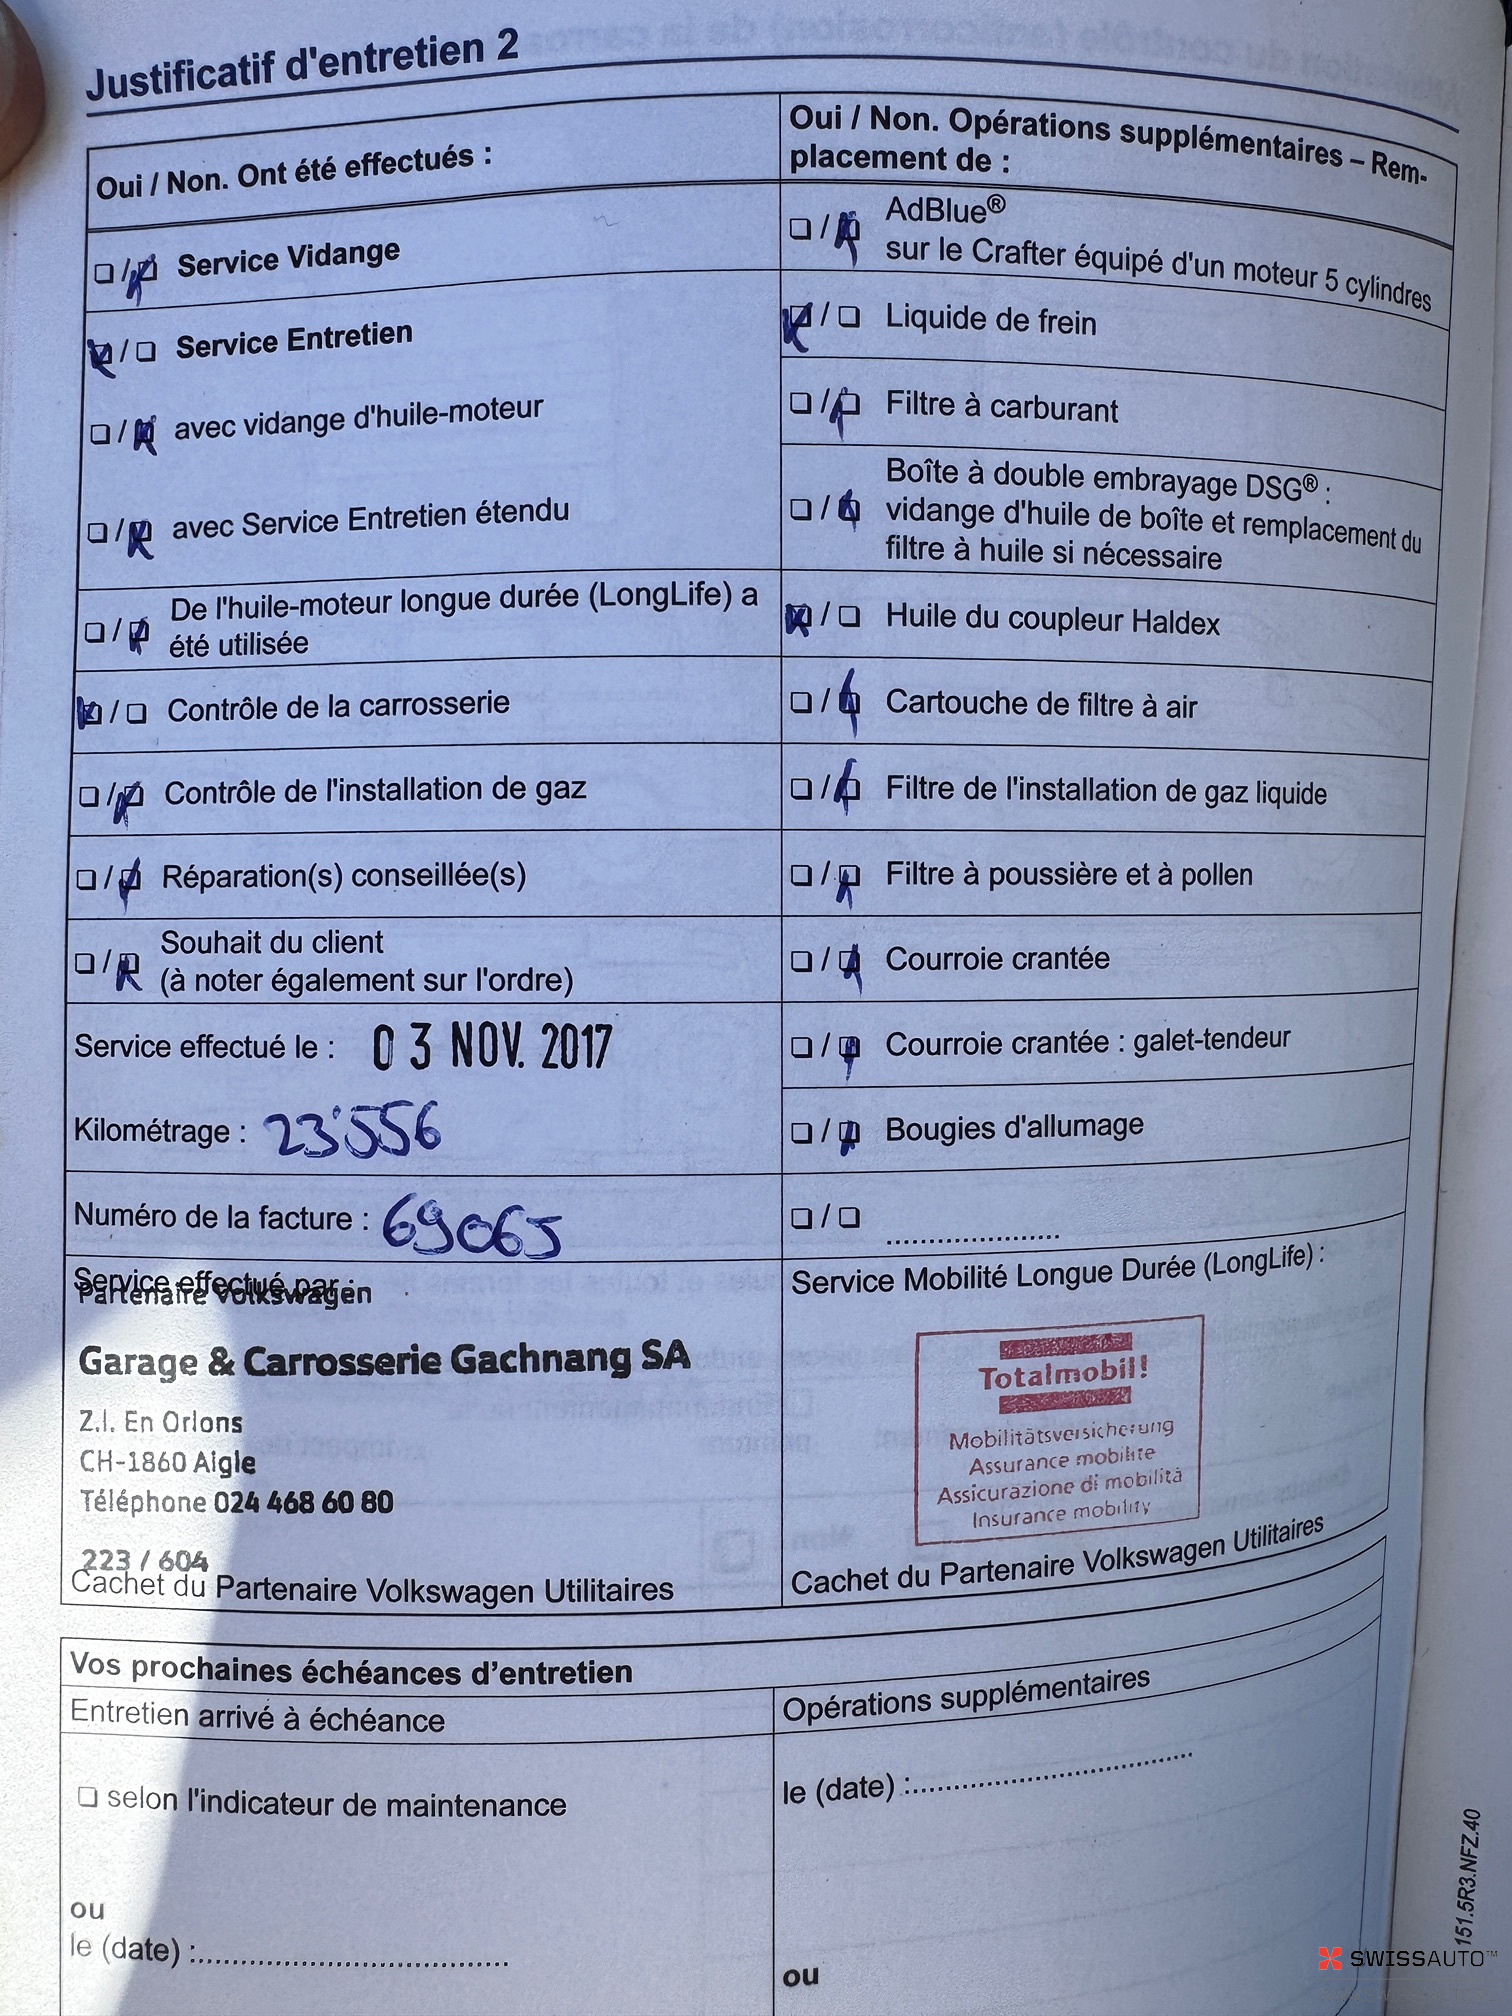 Justificatif d'entretien 2
Oui / Non. Ont été effectués :
❏ / ❏ Service Vidange
❏ / ❏ Service Entretien
❏ / ❏ avec vidange d'huile-moteur
❏ / ❏ avec Service Entretien étendu
❏ / ❏ De l'huile-moteur longue durée (LongLife) a
été utilisée
❏ / ❏ Contrôle de la carrosserie
❏ / ❏ Contrôle de l'installation de gaz
❏ / ❏ Réparation(s) conseillée(s)
❏ / ❏ Souhait du client
(à noter également sur l'ordre)
Service effectué le : 03 NOV. 2017
Kilométrage : 23'556
Numéro de la facture : 69065
Service effectué par :
Partenaire Volkswagen
Garage & Carrosserie Gachnang SA
Z.I. En Orlons
CH-1860 Aigle
Téléphone 024 468 60 80
223 / 604
Cachet du Partenaire Volkswagen Utilitaires
Oui / Non. Opérations supplémentaires – Rem-
placement de :
❏ / ❏ AdBlue®
sur le Crafter équipé d'un moteur 5 cylindres
❏ / ❏ Liquide de frein
❏ / ❏ Filtre à carburant
Boîte à double embrayage DSG® :
❏ / ❏ vidange d'huile de boîte et remplacement du
filtre à huile si nécessaire
❏ / ❏ Huile du coupleur Haldex
❏ / ❏ Cartouche de filtre à air
❏ / ❏ Filtre de l'installation de gaz liquide
❏ / ❏ Filtre à poussière et à pollen
❏ / ❏ Courroie crantée
❏ / ❏ Courroie crantée : galet-tendeur
❏ / ❏ Bougies d'allumage
❏ / ❏ ....................
Service Mobilité Longue Durée (LongLife) :
Totalmobil!
Mobilitätsversicherung
Assurance mobilité
Assicurazione di mobilità
Insurance mobility
Cachet du Partenaire Volkswagen Utilitaires
Vos prochaines échéances d'entretien
Entretien arrivé à échéance
❏ selon l'indicateur de maintenance
ou
le (date) :....................
Opérations supplémentaires
le (date) :....................
ou
151.5R3.NFZ.40
SWISSAUTO™